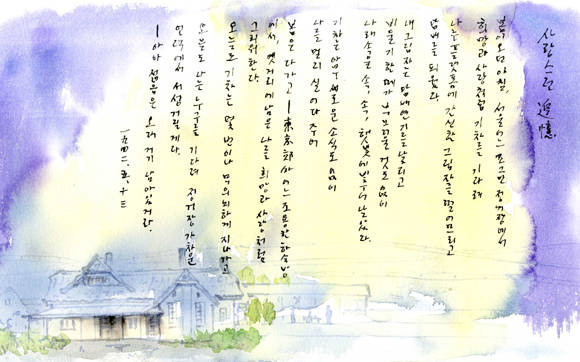 사랑스런 追憶
봄이 오던 아침, 서울 어느 쪼그만 정거장에서
희망과 사랑처럼 기차를 기다려
나는 플랫폼에 간신한 그림자를 떨어뜨리고
담배를 피웠다.
내 그림자는 담배연기를 날리고
비둘기 한 떼가 부끄러울 것도 없이
나래 속을 속, 속, 햇빛에 비춰 날았다.
기차는 아무 새로운 소식도 없이
나를 멀리 실어다 주어
봄은 다 가고 — 東京 郊外 어느 조용한 하숙방
에서, 옛거리에 남은 나를 희망과 사랑처럼
그리워한다.
오늘도 기차는 몇 번이나 무의미하게 지나가고
오늘도 나는 누구를 기다려 정거장 가차운
언덕에서 서성거릴 게다.
— 아아 젊음은 오래 거기 남아 있거라.
一九四二、五、十三